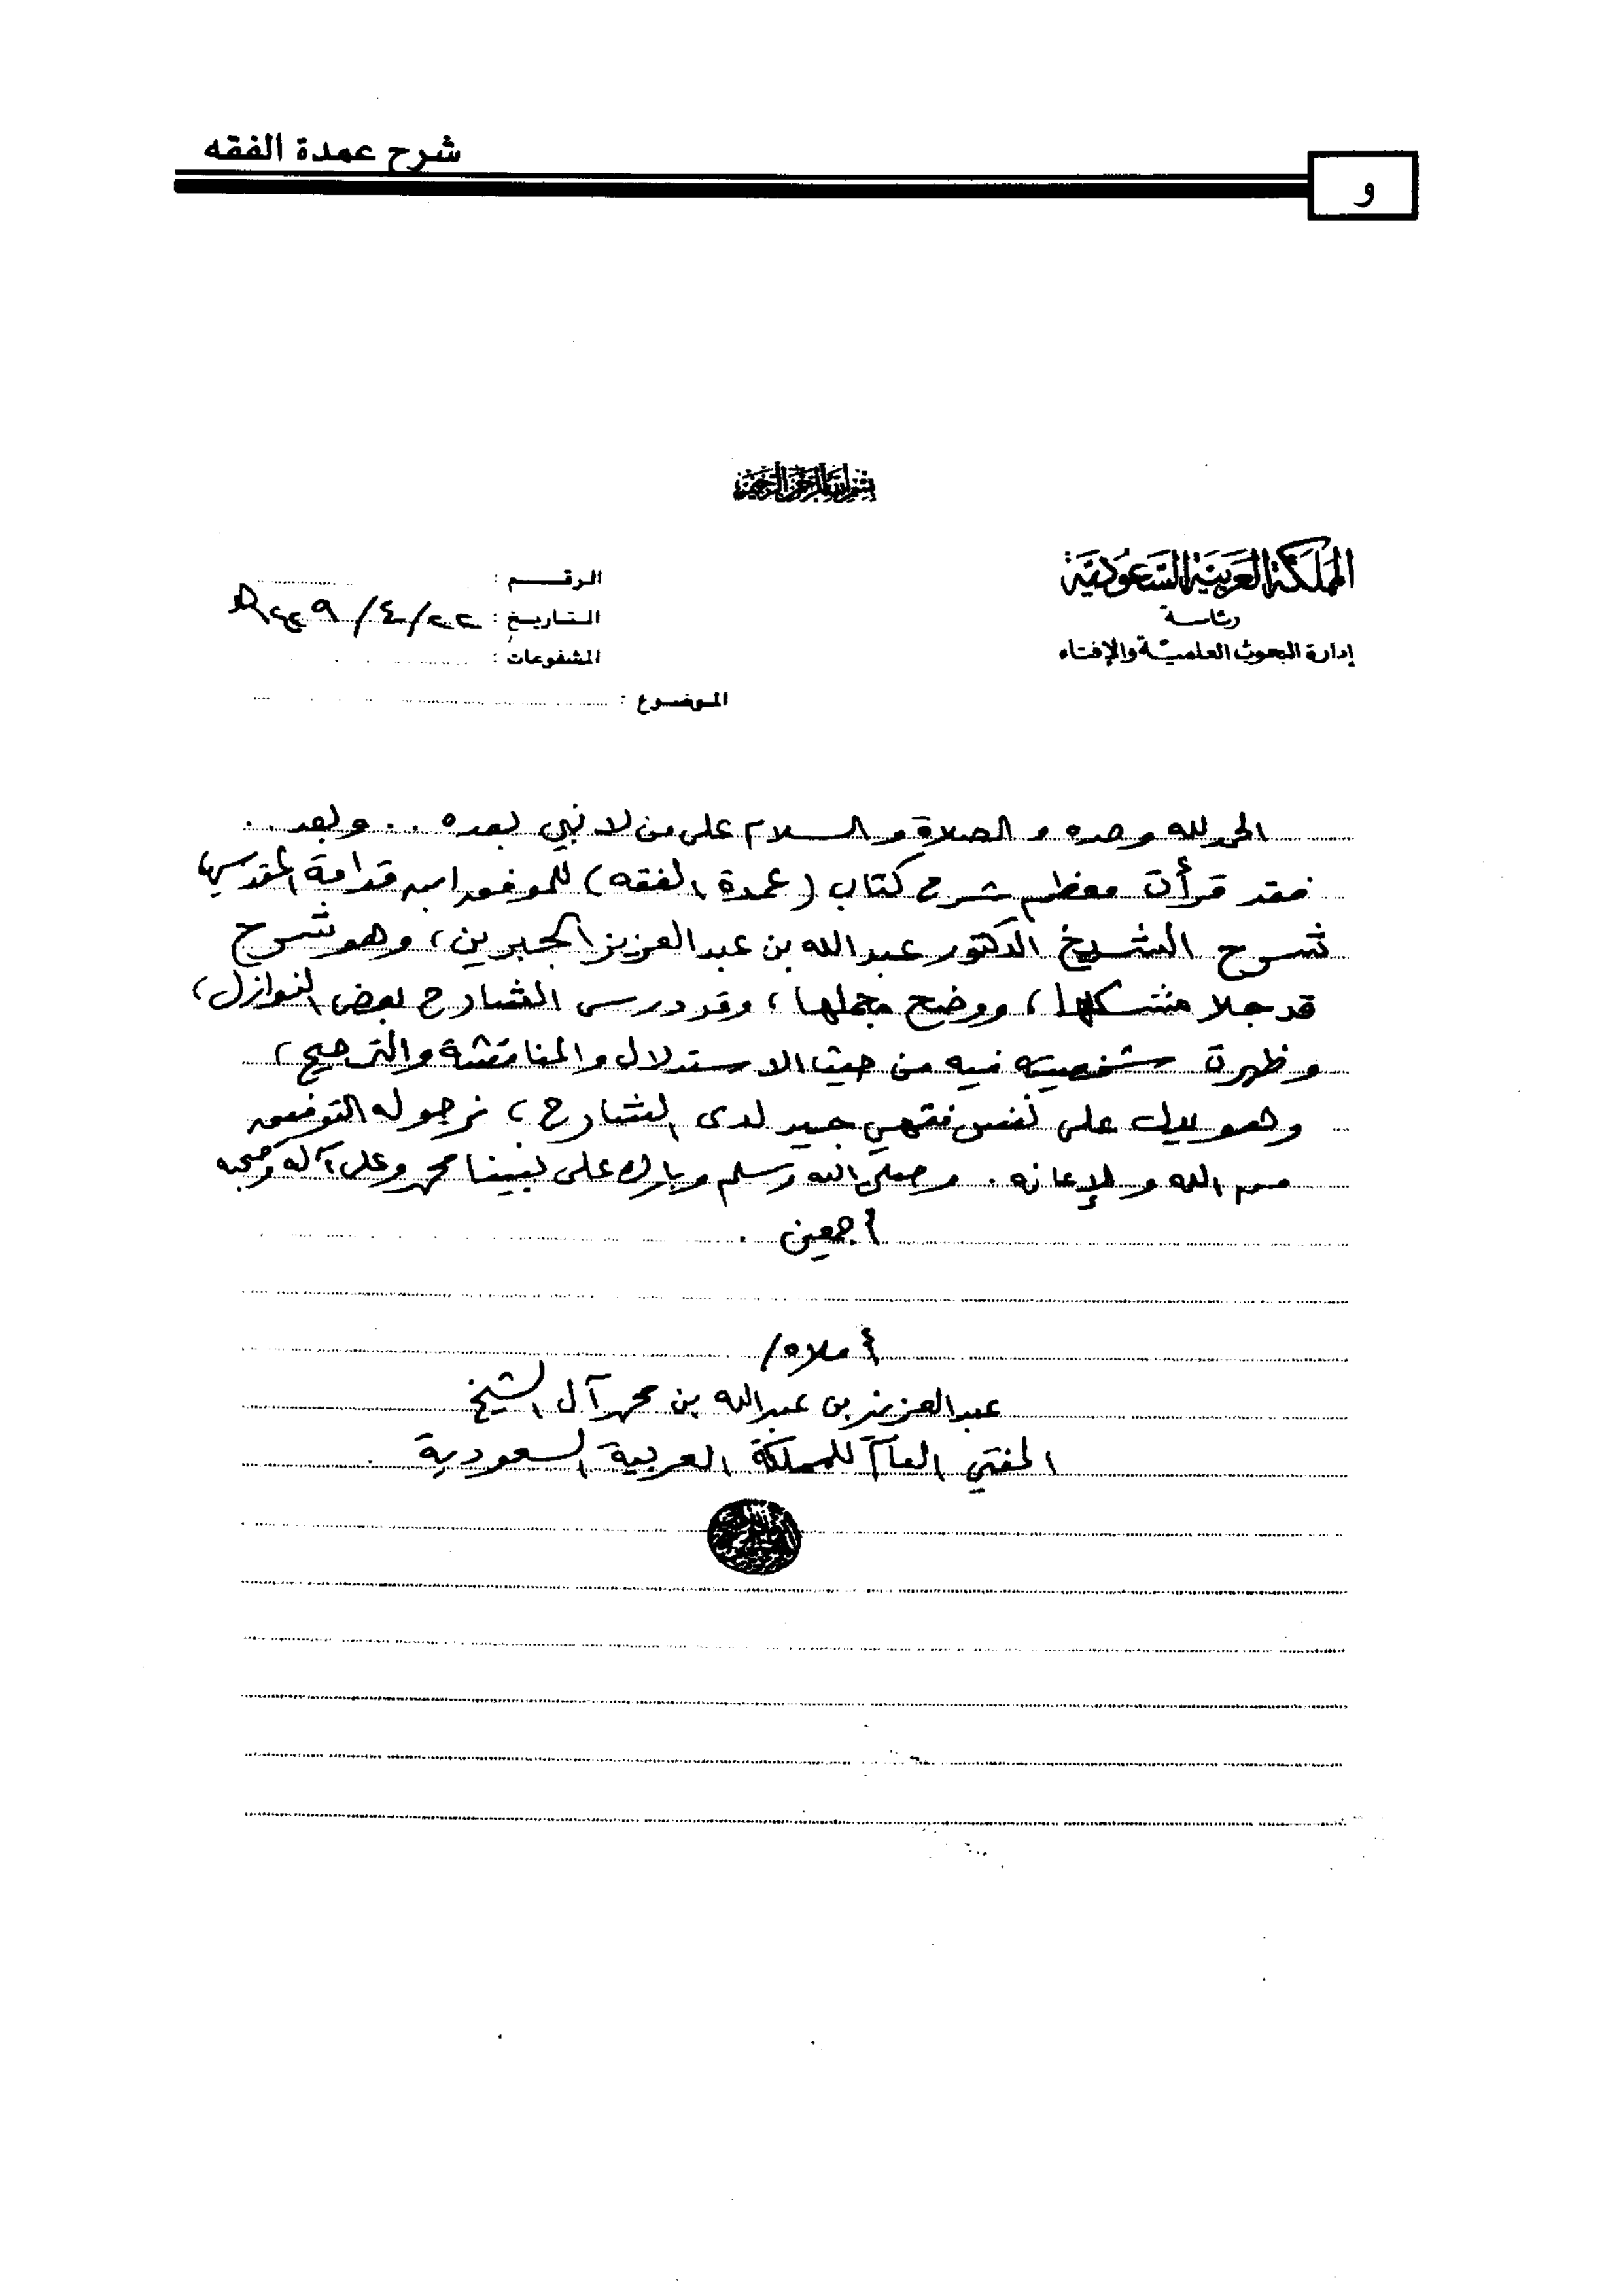 شرح عمدة الفقه
و
بسم الله الرحمن الرحيم
المملكة العربية السعودية
رئاسة
إدارة البحوث العلمية والإفتاء
الرقم :
التاريخ : ٢٢/٤/١٤٢٩هـ
المشفوعات :
الموضوع :
الحمد لله وحده والصلاة والسلام على من لا نبي بعده .. وبعد ..
فقد قرأت معظم شرح كتاب (عمدة الفقه) للموفق ابن قدامة المقدسي
شرح الشيخ الدكتور عبدالله بن عبدالعزيز الجبرين، وهو شرح
قد جلا مشكلها، ووضح مجملها، وقد درس الشارح بعض النوازل،
وظهرت شخصيته فيه من حيث الاستدلال والمناقشة والترجيح،
وهو يدل على نفس فقهي جيد لدى الشارح، نرجو له التوفيق
من الله والإعانه. وصلى الله وسلم وبارك على نبينا محمد وعلى آله وصحبه
أجمعين .
أملاه/
عبدالعزيز بن عبدالله بن محمد آل الشيخ
المفتي العام للمملكة العربية السعودية